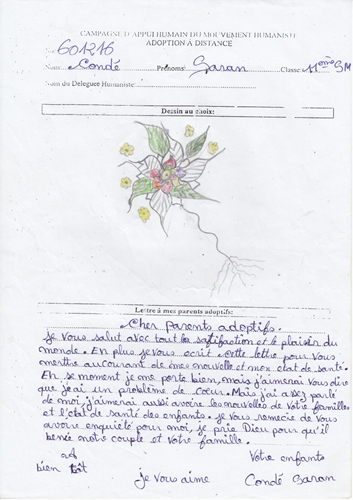 CAMPAGNE D'APPUI HUMAIN DU MOUVEMENT HUMANISTE
ADOPTION A DISTANCE
601216
Nom: Condé Prénoms: Saran Classe: 11ème SM
Nom du Délégué Humaniste:
Dessin au choix:
Lettre à mes parents adoptifs:
Cher parents adoptifs.
Je vous salut avec tout la satisfaction et le plaisir du
monde. En plus je vous ecrit cette lettre pour vous
menthre au courant de mes nouvelle et mon etat de santé.
En se moment je me porte bien, mais j'aimerai vous dire
que j'ai un problème de Coeur. Mais j'ai assez parlé
de moi, j'aimerai aussi avoire les nouvelles de votre famille
et l'état de santé des enfants. je vous remecie de vous
avoire enquiété pour moi, je prie Dieu pour qu'il
benéé notre couple et votre famille.
à Votre enfants
bien tôt je vous aime Condé Saran